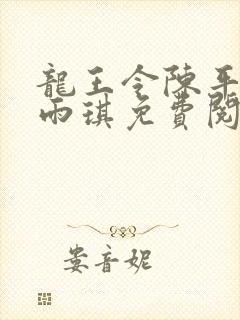 龍王令陳平
雨琪免費閱
婁音妮